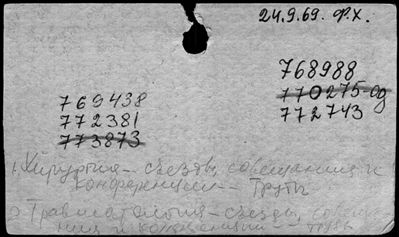 24.9.69. ф.х.
768988
770275-од
772743
769438
772381
773873
1. Хирургия - съезды, совещания и
конференции -- Труды
2) Травматология - съезды, совеща-
ния и конференции -- Труды